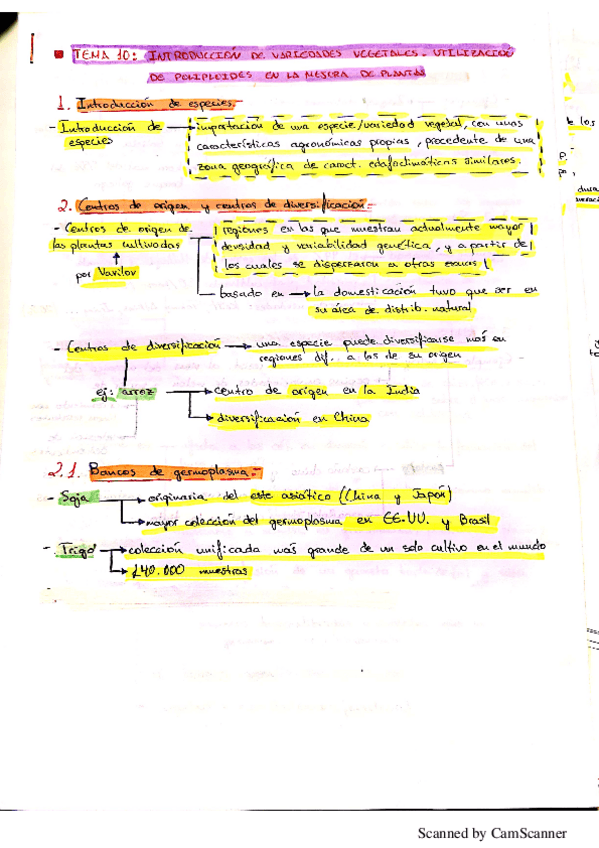 TEMA 10: INTRODUCCIÓN DE VARIEDADES VEGETALES. UTILIZACIÓN
DE POLIPLOIDES EN LA MEJORA DE PLANTAS
1. Introducción de especies.
- Introducción de especies → importación de una especie/variedad vegetal, con unas
características agronómicas propias, procedente de una
zona geográfica de caract. edafoclimáticas similares.
2. Centros de origen y centros de diversificación.-
- Centros de origen de las plantas cultivadas
por Vavilov
regiones en las que muestran actualmente mayor
densidad y variabilidad genética, y a partir de
los cuales se dispersaron a otras
basado en → la domesticación tuvo que ser en
su área de distrib. natural
- Centros de diversificación → una especie puede diversificarse más en
regiones dif. a los de su origen
ej: arroz → centro de origen en la India
→ diversificación en China
2.1. Bancos de germoplasma.-
- Soja → originaria del este asiático (China y Japón)
→ mayor colección del germoplasma en EE.UU. y Brasil
- Trigo → colección unificada más grande de un solo cultivo en el mundo
→ 140.000 muestras
de los
Scanned by CamScanner